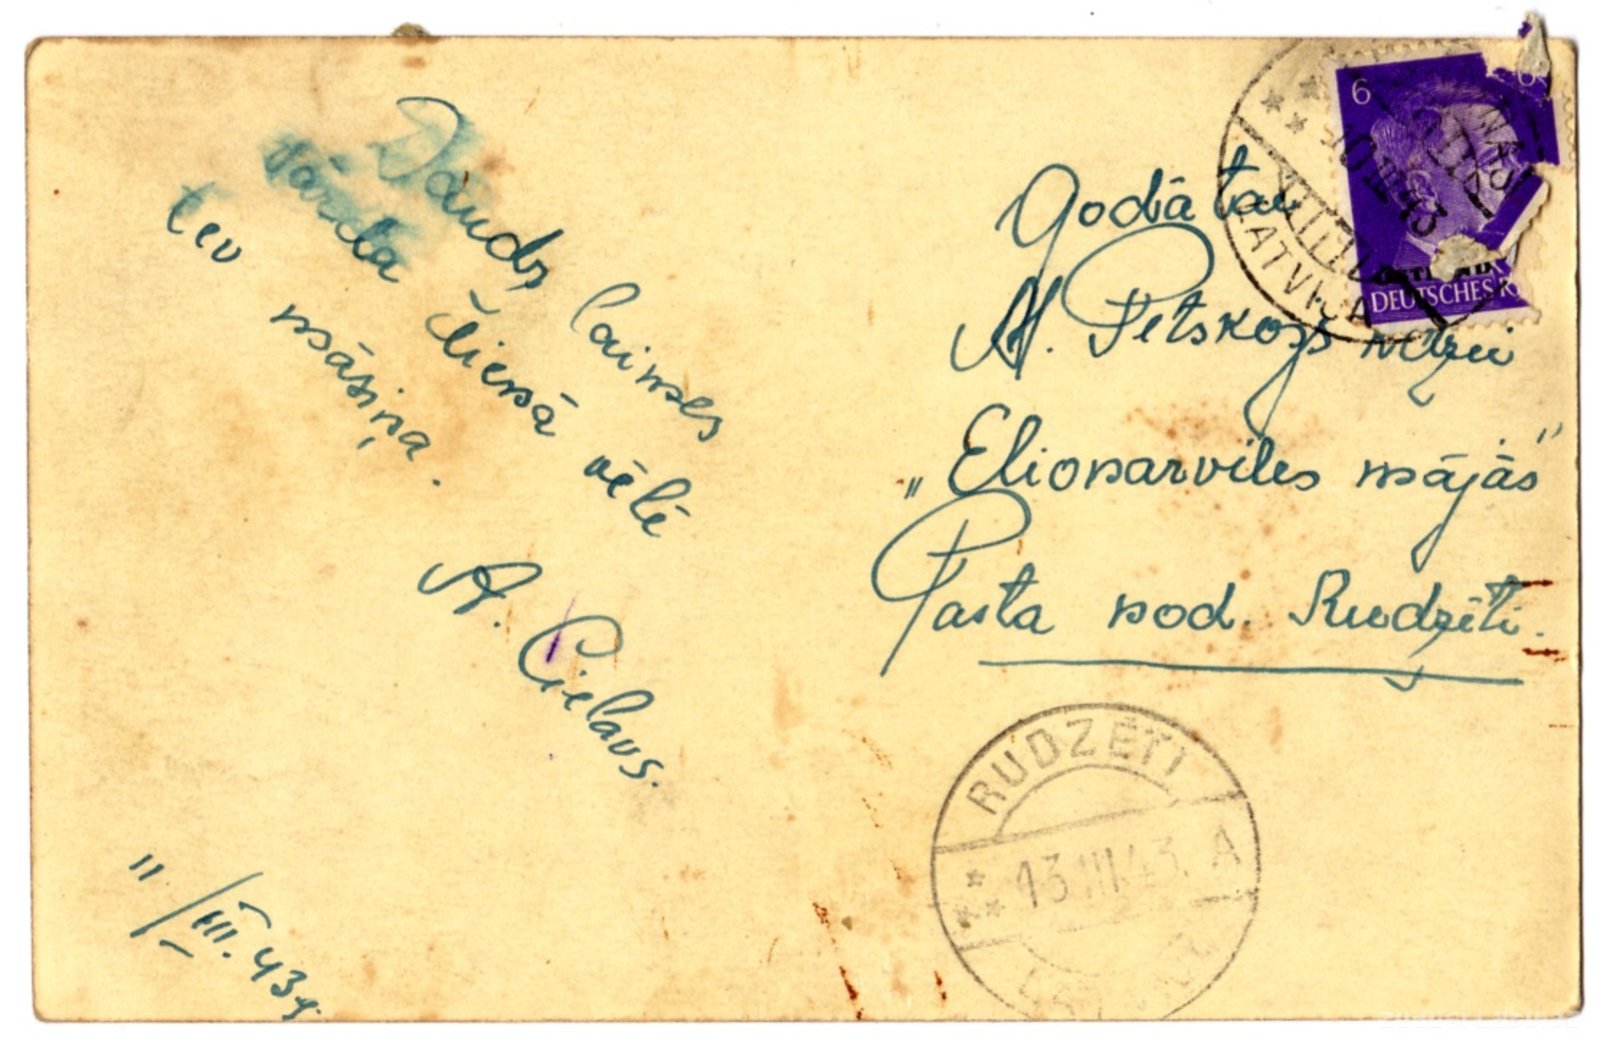 Daudz laimes
vārda dienā vēlē
tev māsiņa.
A. Cielavs.
"/III. 43g.
Godātai
A. Petskops kdzei
„Elionarviles mājās"
Pasta nod. Rudzēti.
6
DEUTSCHES R
10 III 43
LATVIJA
RUDZĒTI
13.III.43. A